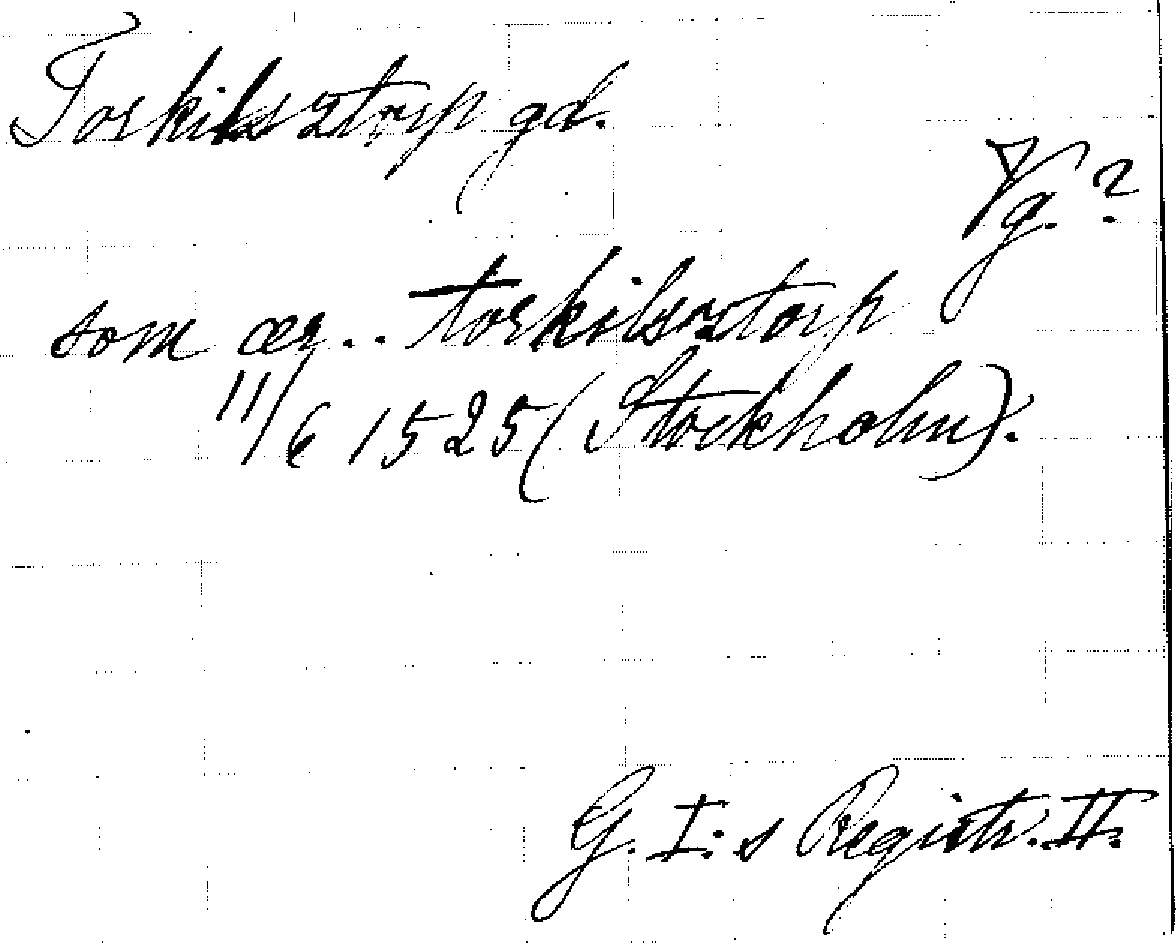 Torkilsztorp gd.
Vg. ?
som ær.. torkilsztorp
11/6 1525 (Stockholm).
G. I:s Registr. II.